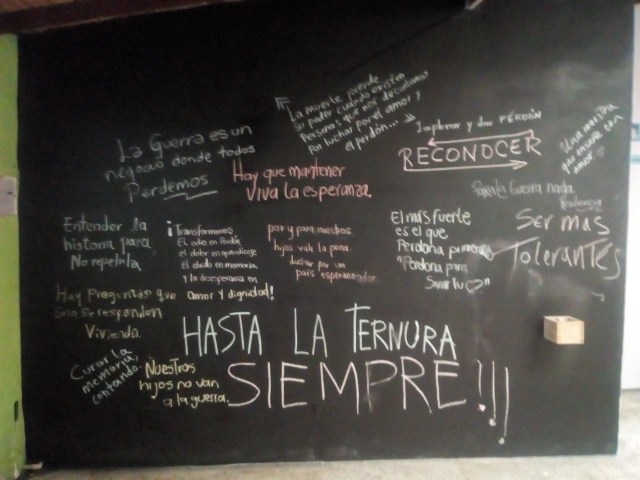 La muerte pierde
su poder cuando existen
personas que nos decidamos
por luchar por el amor y
el perdón...
Implorar y dar PERDÓN
RECONOCER
La Guerra es un
negocio donde todos
Perdemos
Hay que mantener
viva la esperanza.
Una mordida
amor
Para la Guerra nada
Resiliencia
Entender la
historia para
No repetirla
¡Transformemos
El odio en Perdón
el dolor en aprendizaje
El olvido en memoria
y la desesperanza en
amor y dignidad!
paz y para nuestros
hijos vale la pena
luchar por un
país esperanzador
El más fuerte
es el que
Perdona primero
"Perdona para
Sanar tu ♡"
SER MAS
TOLERANTES
Hay Preguntas que
Solo se responden
Viviendo.
HASTA LA TERNURA
SIEMPRE!!!
Curar la
memoria
contando.
Nuestros
hijos no van
a la guerra.